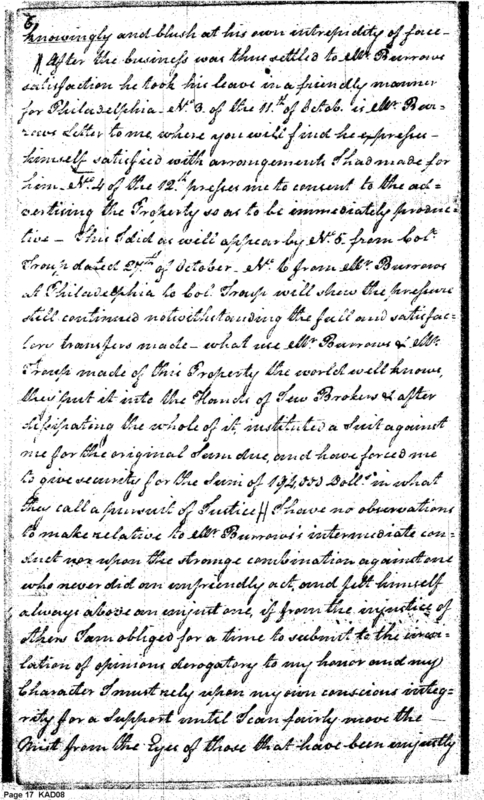 6
knowingly and blush at his own intrepidity of face —
// After the business was thus settled to Mr. Burrows
satisfaction he took his leave in a friendly manner
for Philadelphia — No. 3. of the 11th of Octob. is Mr. Bur-
rows Letter to me, where you will find he expresses
himself satisfied with arrangements I had made for
him — No. 4 of the 12th presses me to consent to the ad-
vertising the Property so as to be immediately produc-
tive — This I did as will appear by No. 5. from Col.
Troup dated 27th of October — No. 6 from Mr. Burrows
at Philadelphia to Col. Troup will shew the pressure
still continued notwithstanding the full and satisfac-
tory transfers made — what use Mr. Burrows & Mr.
Troup made of this Property the world well knows,
they put it into the Hands of Jew Brokers & after
dissipating the whole of it, instituted a Suit against
me for the original Sum due, and have forced me
to give security for the Sum of Dolls. in what
they call a pursuit of Justice // I have no observations
to make relative to Mr. Burrows's intermediate con-
duct nor upon the strange combination against one
who never did an unfriendly act, and felt himself
always above an unjust one, if from the injustice of
others I am obliged for a time to submit to the circu-
lation of opinions derogatory to my honor and my
Character I must rely upon my own conscious integ-
rity for a support until I can fairly move the
Mist from the Eyes of those that have been unjustly
Page 17 KAD08